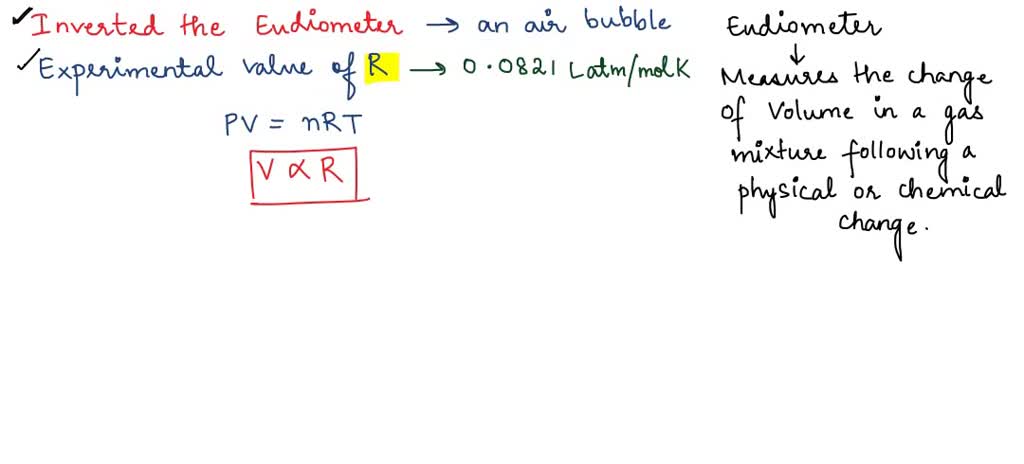 ✓Inverted the Endiometer → an air bubble
✓Experimental value of R → 0.0821 Latm/molK
PV = nRT
V ∝ R
Endiometer
↓
Measures the change
of Volume in a gas
mixture following a
physical or chemical
change.